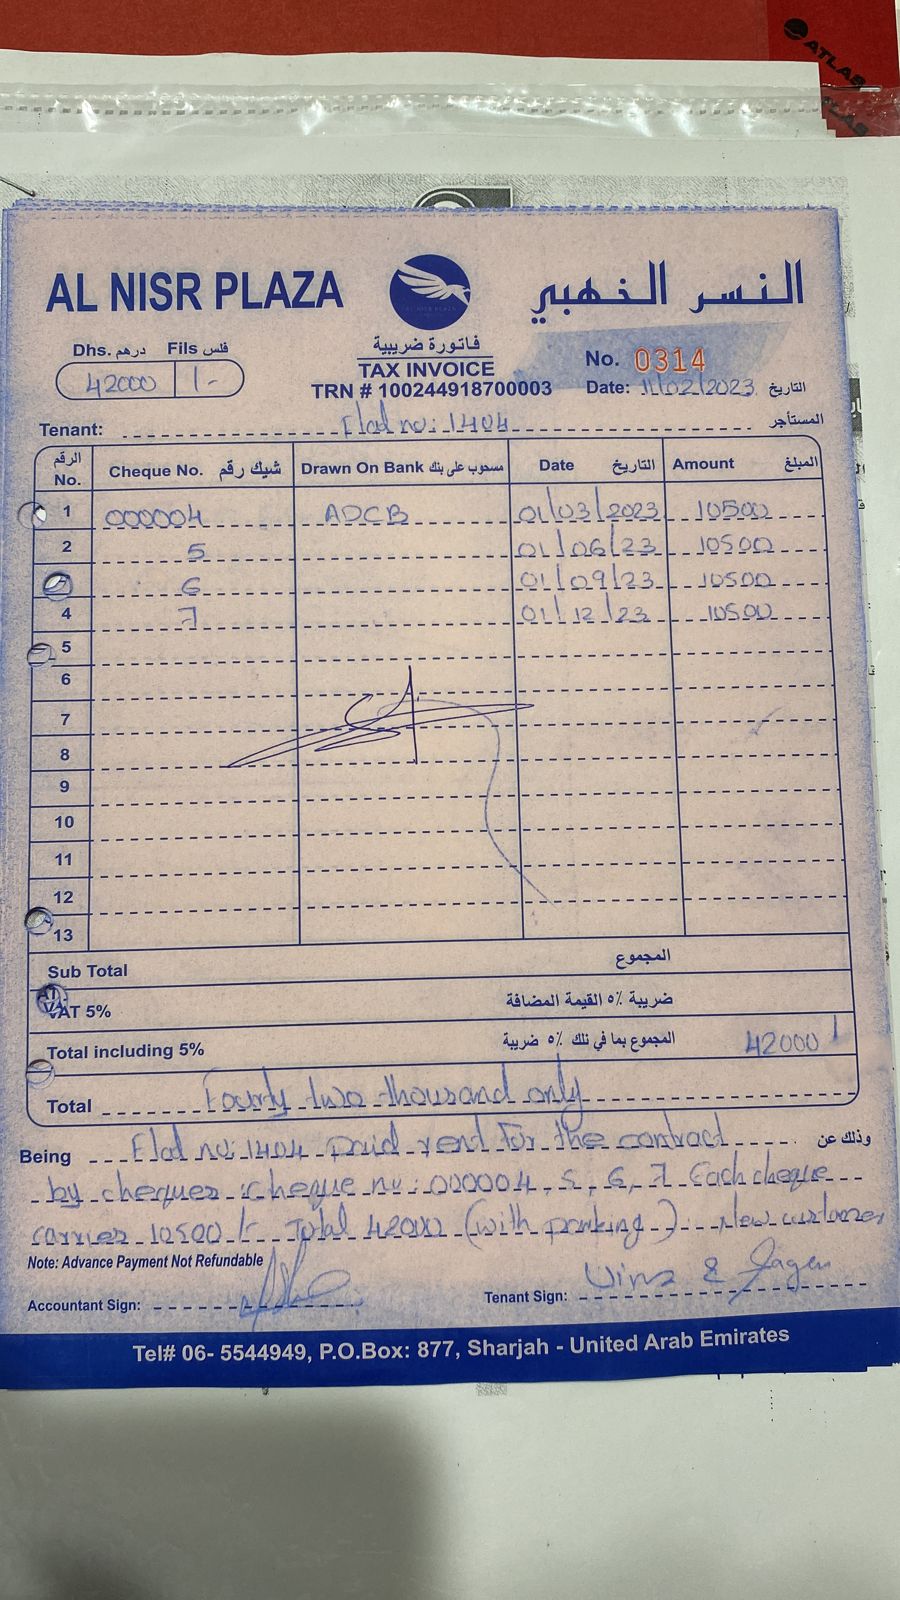 ATLAS
ATLAS
AL NISR PLAZA
النسر الخهبي
AL NISR PLAZA
Dhs. درهم Fils فلس
42000 /-
فاتورة ضريبية
TAX INVOICE
TRN # 100244918700003
No. 0314
Date: 11/02/2023 التاريخ
Tenant: Flad no: 1404 المستأجر
الرقم No. Cheque No. شيك رقم Drawn On Bank مسحوب على بنك Date التاريخ Amount المبلغ
1 000004 ADCB 01/03/2023 10500
2 5 01/06/23 10500
6 01/09/23 10500
4 7 01/12/23 10500
5
6
7
8
9
10
11
12
13
Sub Total المجموع
VAT 5% ضريبة ٥٪ القيمة المضافة
Total including 5% المجموع بما في ذلك ٥٪ ضريبة 42000
Total Fourty two thousand only
Being Flad no: 1404 paid rend for the contract وذلك عن
by cheques :cheque no: 000004, 5, 6, 7 Each cheque
carries 10500/- Total 42000 (with parking) New customer
Note: Advance Payment Not Refundable
Accountant Sign:
Tenant Sign:
Tel# 06- 5544949, P.O.Box: 877, Sharjah - United Arab Emirates